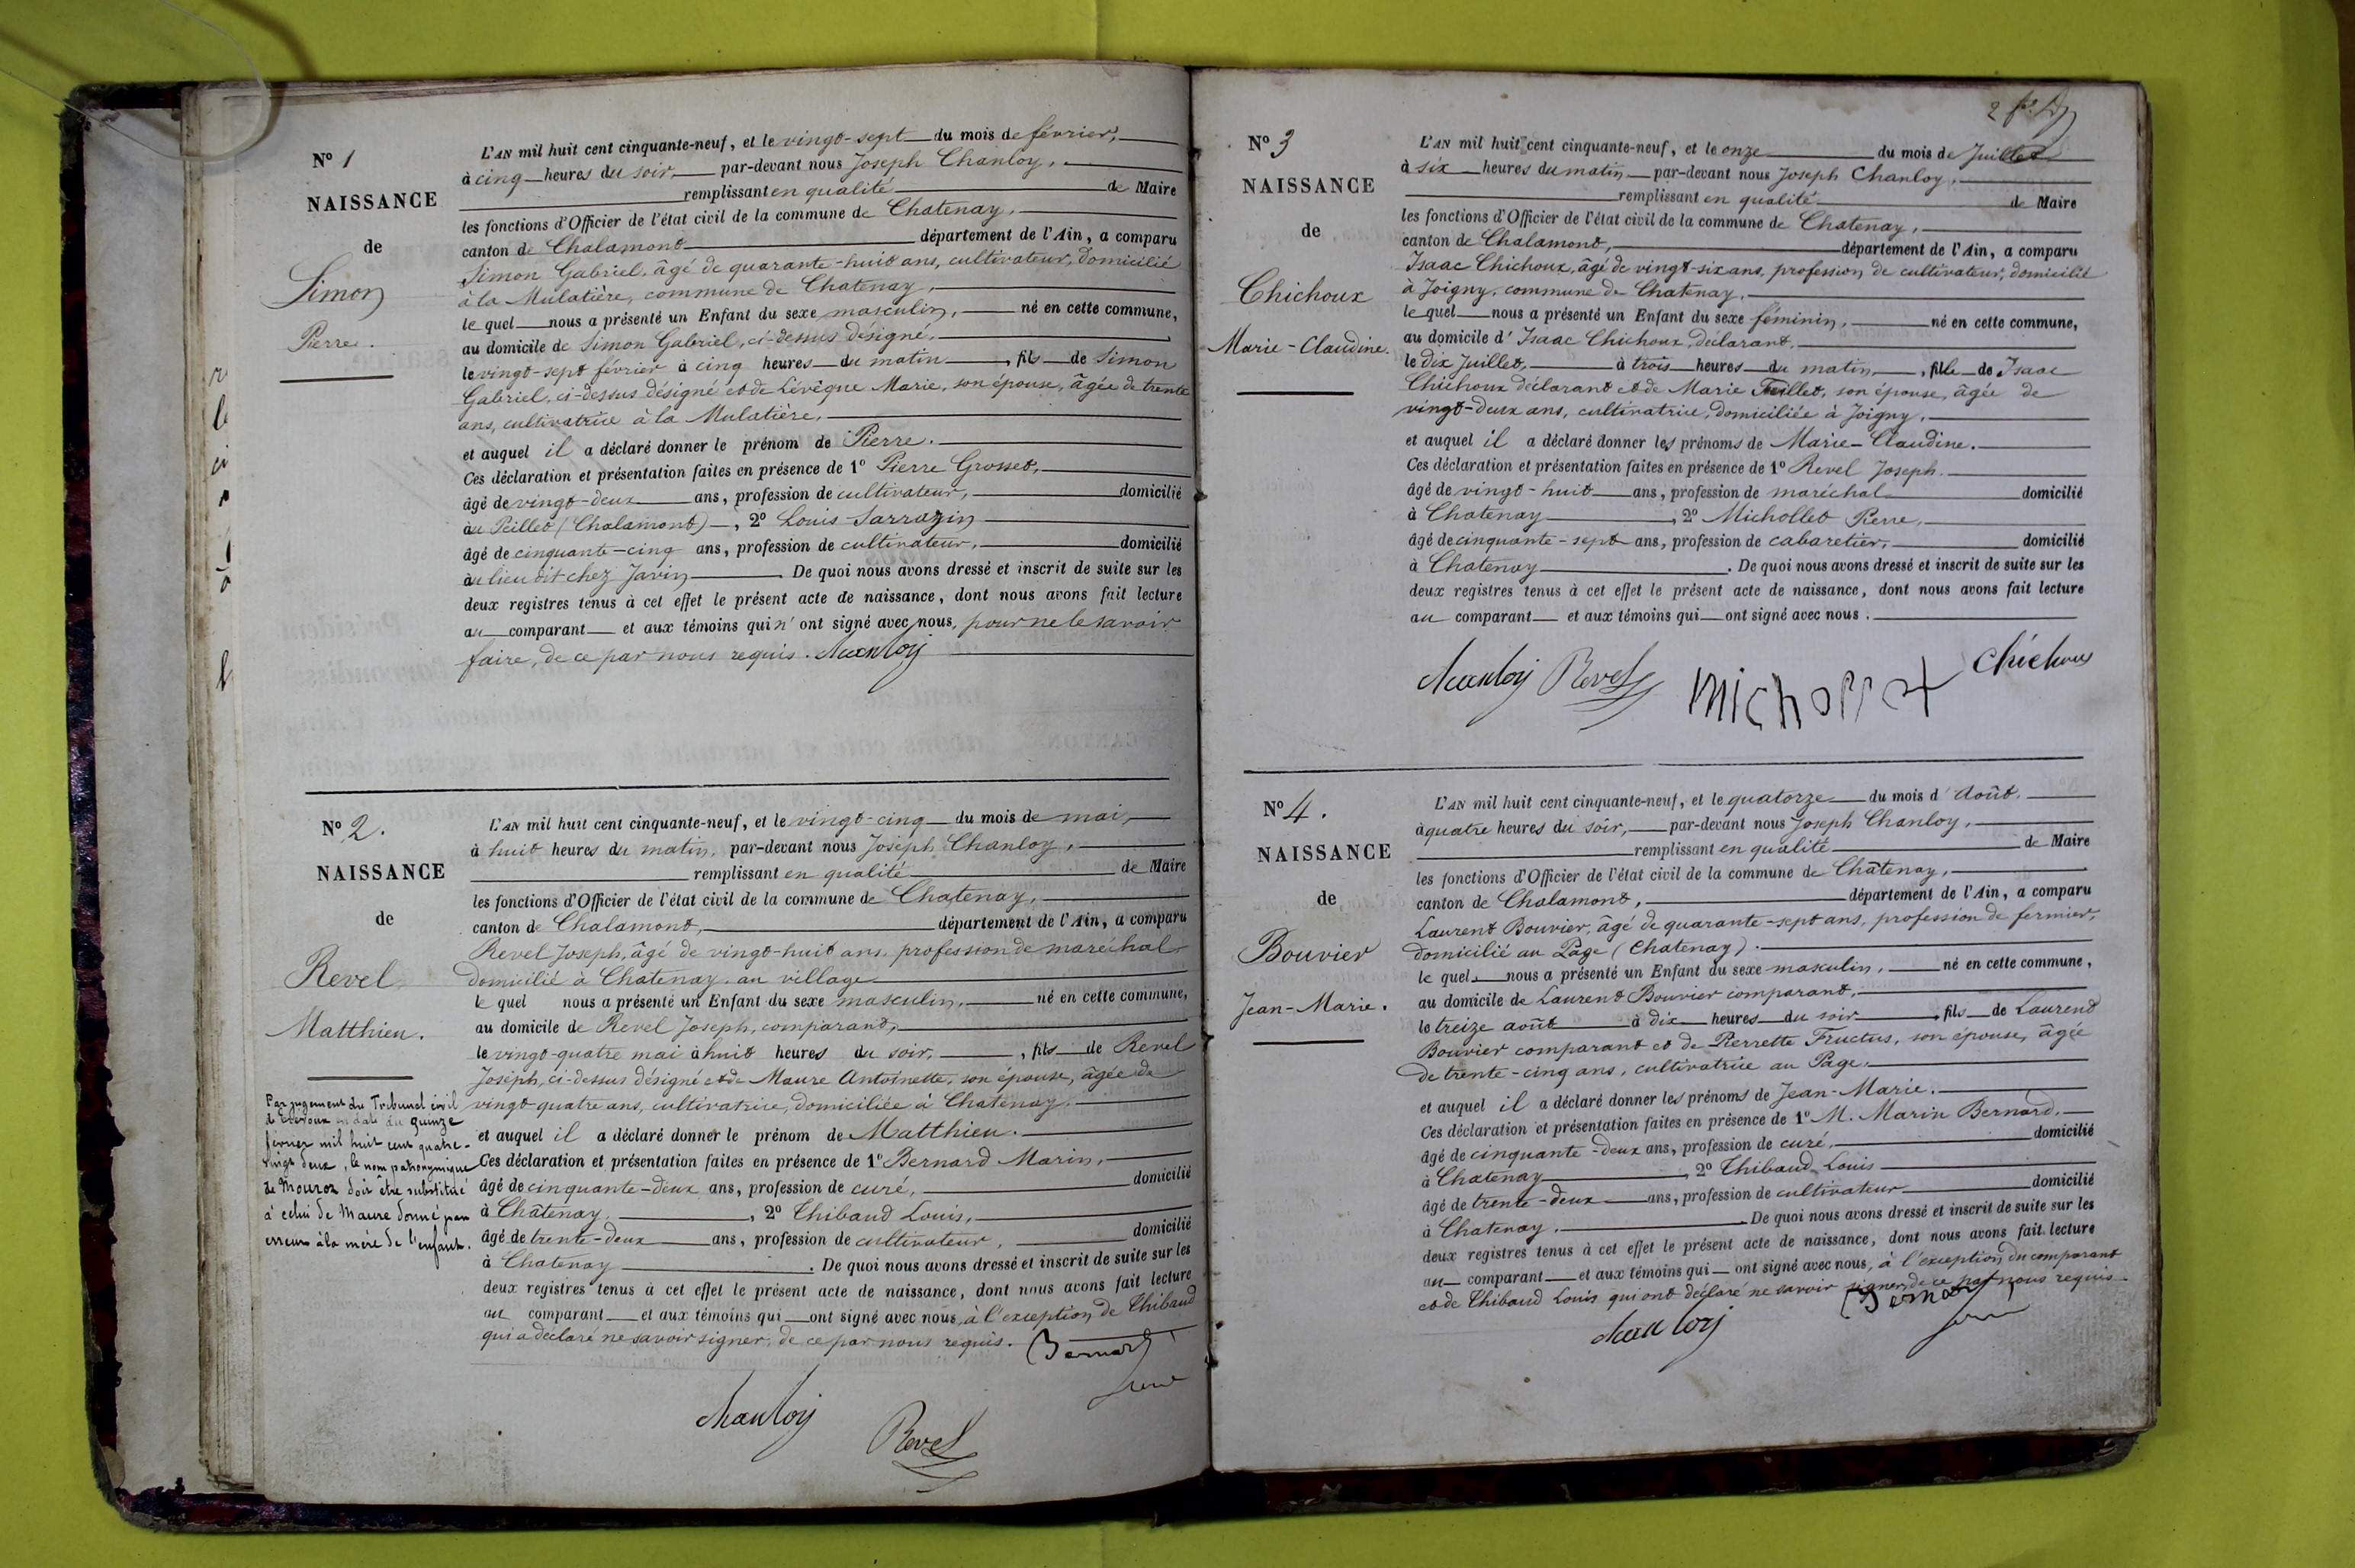 N° 1
NAISSANCE
de
Simon
Pierre.
L'AN mil huit cent cinquante-neuf, et le vingt-sept du mois de février,
à cinq heures du soir, par-devant nous Joseph Chanloy,
remplissant en qualité de Maire
les fonctions d'Officier de l'état civil de la commune de Chatenay,
canton de Chalamont département de l'Ain, a comparu
Simon Gabriel, âgé de quarante-huit ans, cultivateur, domicilié
à la Mulatière, commune de Chatenay,
le quel nous a présenté un Enfant du sexe masculin, né en cette commune,
au domicile de Simon Gabriel, ci-dessus désigné,
le vingt-sept février à cinq heures du matin, fils de Simon
Gabriel, ci-dessus désigné et de Lévêque Marie, son épouse, âgée de trente
ans, cultivatrice à la Mulatière,
et auquel il a déclaré donner le prénom de Pierre.
Ces déclaration et présentation faites en présence de 1° Pierre Grosset,
âgé de vingt-deux ans, profession de cultivateur, domicilié
au Peillet (Chalamont), 2° Louis Sarrazin
âgé de cinquante-cinq ans, profession de cultivateur, domicilié
au lieu dit chez Javin. De quoi nous avons dressé et inscrit de suite sur les
deux registres tenus à cet effet le présent acte de naissance, dont nous avons fait lecture
au comparant et aux témoins qui n'ont signé avec nous, pour ne le savoir
faire, de ce par nous requis. Chanloy
N° 2.
NAISSANCE
de
Revel
Matthieu.
Par jugement du Tribunal civil
de Trévoux en date du quinze
février mil huit cent quatre-
vingt deux, le nom patronymique
de Mouroz doit être substitué
à celui de Maure donné par
erreur à la mère de l'enfant.
L'AN mil huit cent cinquante-neuf, et le vingt-cinq du mois de mai,
à huit heures du matin, par-devant nous Joseph Chanloy,
remplissant en qualité de Maire
les fonctions d'Officier de l'état civil de la commune de Chatenay,
canton de Chalamont, département de l'Ain, a comparu
Revel Joseph, âgé de vingt-huit ans, profession de maréchal
domicilié à Chatenay, au village
le quel nous a présenté un Enfant du sexe masculin, né en cette commune,
au domicile de Revel Joseph, comparant,
le vingt-quatre mai à huit heures du soir, fils de Revel
Joseph, ci-dessus désigné et de Maure Antoinette, son épouse, âgée de
vingt-quatre ans, cultivatrice, domiciliée à Chatenay.
et auquel il a déclaré donner le prénom de Matthieu.
Ces déclaration et présentation faites en présence de 1° Bernard Marin,
âgé de cinquante-deux ans, profession de curé, domicilié
à Châtenay, 2° Thibaud Louis,
âgé de trente-deux ans, profession de cultivateur, domicilié
à Chatenay. De quoi nous avons dressé et inscrit de suite sur les
deux registres tenus à cet effet le présent acte de naissance, dont nous avons fait lecture
au comparant et aux témoins qui ont signé avec nous, à l'exception de Thibaud
qui a déclaré ne savoir signer, de ce par nous requis. Bernard
Chanloy Revel
N° 3
NAISSANCE
de
Chichoux
Marie-Claudine.
L'AN mil huit cent cinquante-neuf, et le onze du mois de Juillet
à six heures du matin par-devant nous Joseph Chanloy,
remplissant en qualité de Maire
les fonctions d'Officier de l'état civil de la commune de Chatenay,
canton de Chalamont, département de l'Ain, a comparu
Isaac Chichoux, âgé de vingt-six ans, profession de cultivateur, domicilié
à Joigny, commune de Chatenay,
le quel nous a présenté un Enfant du sexe féminin, né en cette commune,
au domicile d'Isaac Chichoux, déclarant,
le dix Juillet, à trois heures du matin, fille de Isaac
Chichoux déclarant et de Marie son épouse, âgée de
vingt-deux ans, cultivatrice, domiciliée à Joigny,
et auquel il a déclaré donner les prénoms de Marie-Claudine.
Ces déclaration et présentation faites en présence de 1° Revel Joseph
âgé de vingt-huit ans, profession de maréchal domicilié
à Chatenay, 2° Michollet Pierre,
âgé de cinquante-sept ans, profession de cabaretier, domicilié
à Chatenay. De quoi nous avons dressé et inscrit de suite sur les
deux registres tenus à cet effet le présent acte de naissance, dont nous avons fait lecture
au comparant et aux témoins qui ont signé avec nous.
Chanloy Revel Michollet Chichoux
N° 4.
NAISSANCE
de
Bouvier
Jean-Marie.
L'AN mil huit cent cinquante-neuf, et le quatorze du mois d'Août.
à quatre heures du soir, par-devant nous Joseph Chanloy,
remplissant en qualité de Maire
les fonctions d'Officier de l'état civil de la commune de Châtenay,
canton de Chalamont, département de l'Ain, a comparu
Laurent Bouvier, âgé de quarante-sept ans, profession de fermier,
domicilié au Page (Chatenay).
le quel nous a présenté un Enfant du sexe masculin, né en cette commune,
au domicile de Laurent Bouvier comparant,
le treize août à dix heures du soir, fils de Laurent
Bouvier comparant et de Pierrette Fructus, son épouse, âgée
de trente-cinq ans, cultivatrice au Page,
et auquel il a déclaré donner les prénoms de Jean-Marie.
Ces déclaration et présentation faites en présence de 1° M. Marin Bernard,
âgé de cinquante-deux ans, profession de curé, domicilié
à Chatenay, 2° Thibaud Louis
âgé de trente-deux ans, profession de cultivateur domicilié
à Chatenay. De quoi nous avons dressé et inscrit de suite sur les
deux registres tenus à cet effet le présent acte de naissance, dont nous avons fait lecture
au comparant et aux témoins qui ont signé avec nous, à l'exception du comparant
et de Thibaud Louis qui ont déclaré ne savoir signer, de ce par nous requis.
Chanloy Bernard